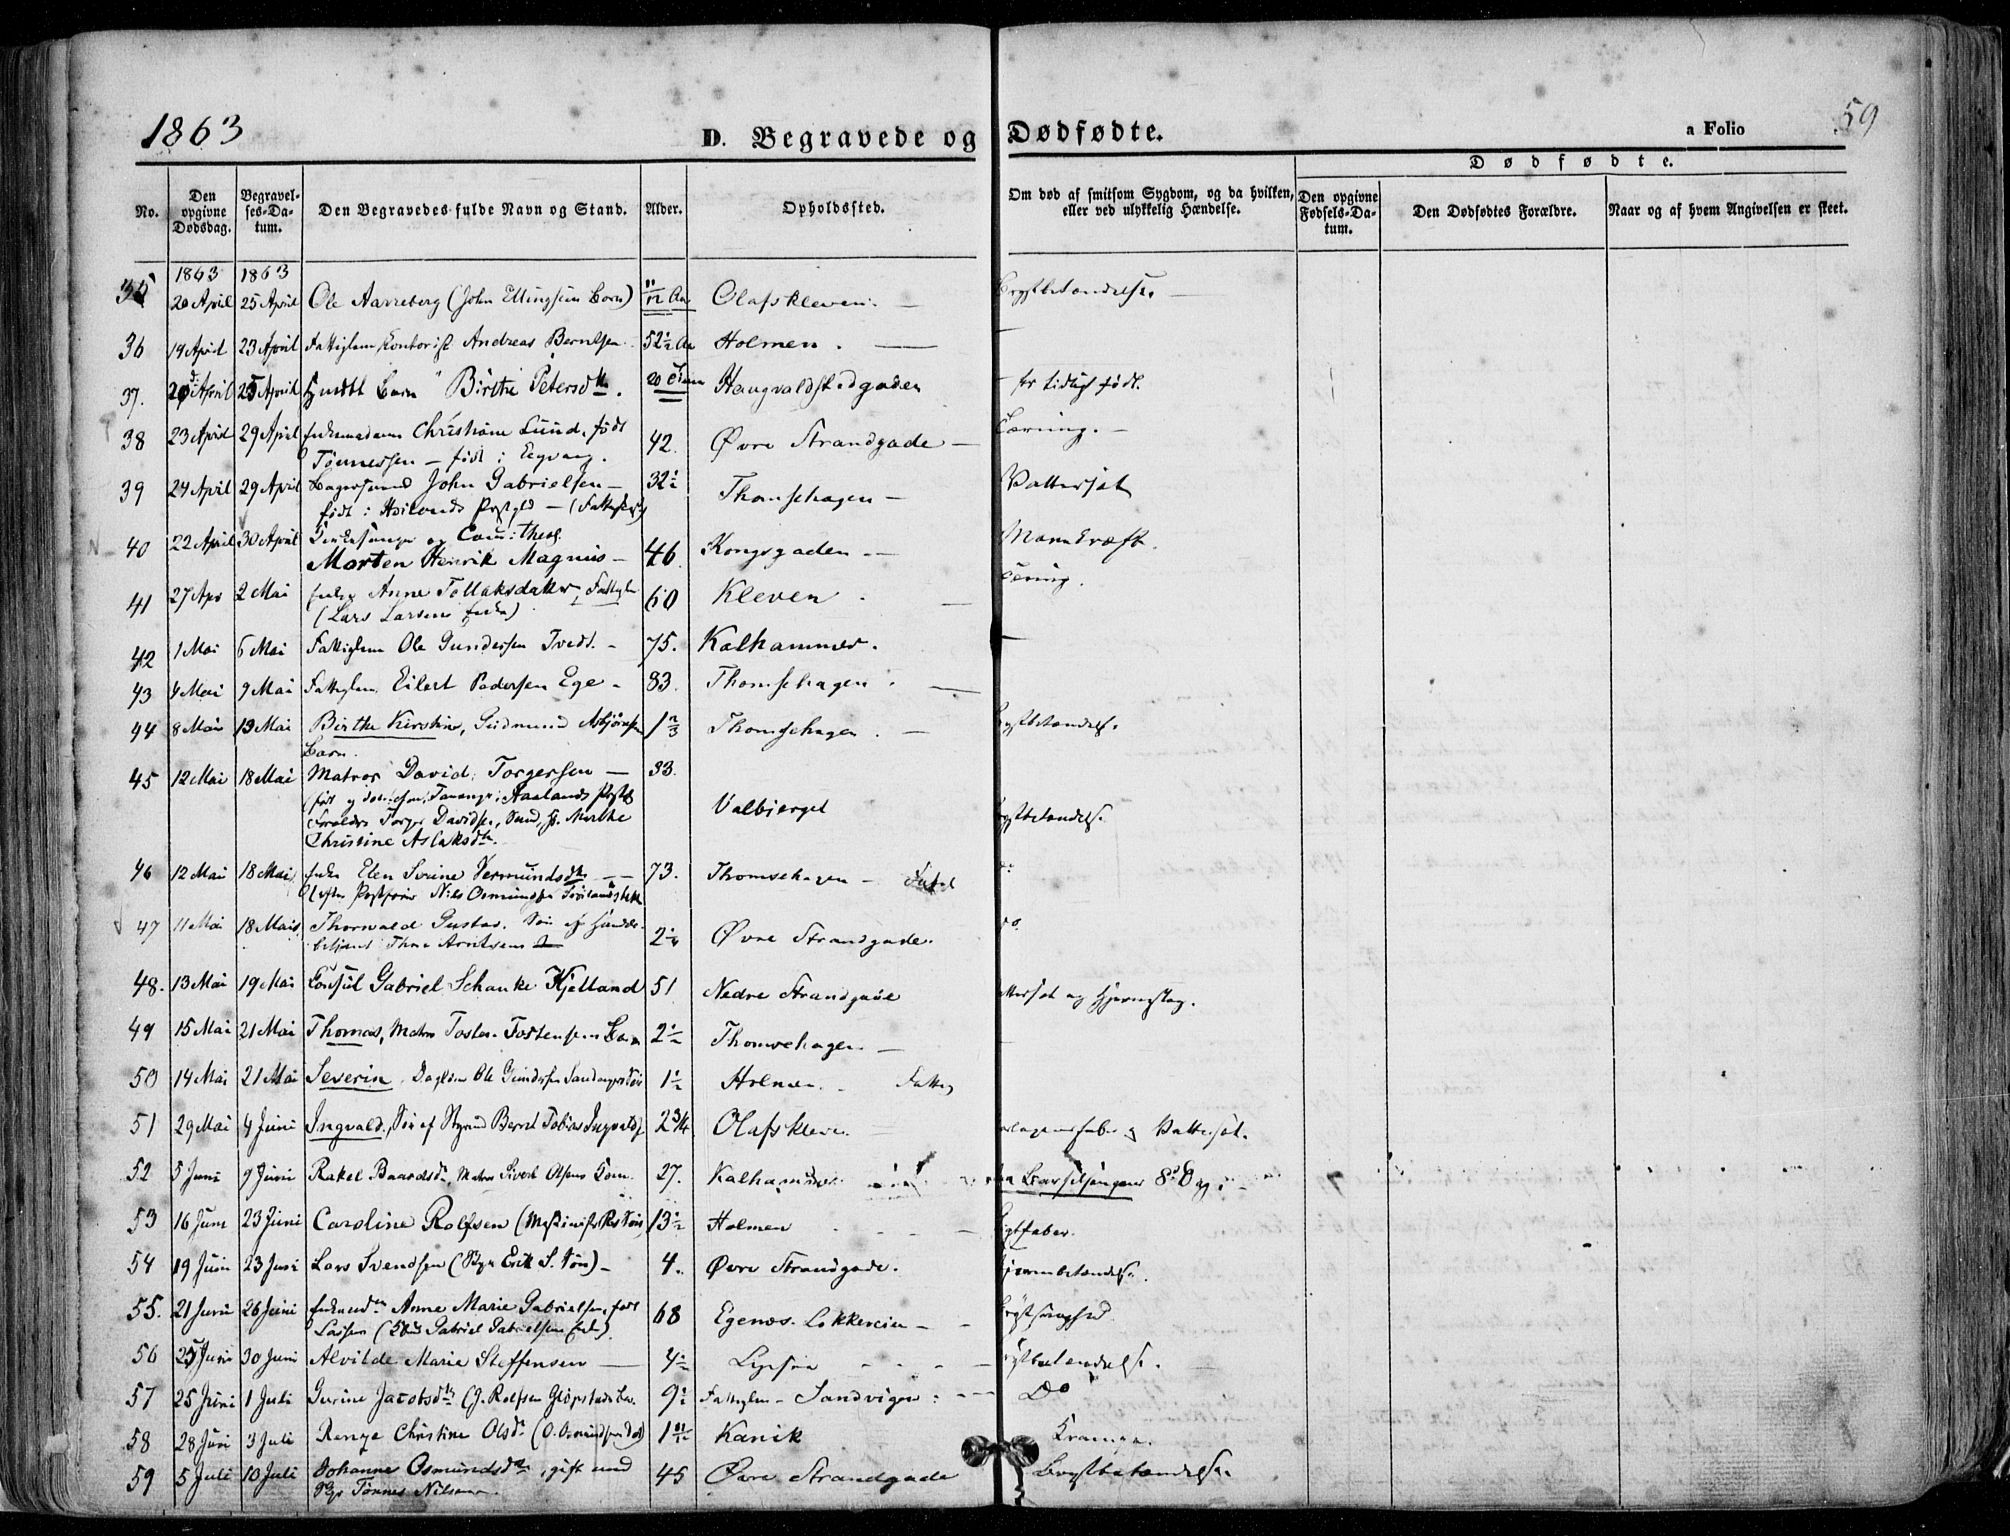 1863
D. Begravede og Dødfødte.
a Folio 59
No.
Den opgivne Dødsdag.
Begravelses-Datum.
Den Begravedes fulde Navn og Stand.
Alder.
Opholdssted.
Om død af smitsom Sygdom, og da hvilken, eller ved ulykkelig Hændelse.
Dødfødte.
Den opgivne Fødsels-Datum.
Den Dødfødtes Forældre.
Naar og af hvem Angivelsen er skeet.
1863 1863
35 20 April 25 April Ole Aarreberg (John Ellingsens Barn) 11/12 Aar Olafskleven. Brystbetændelse.
36 19 April 23 April Fattiglem, Kontorist Andreas Berntsen 52½ Aar Holmen.
37. 20 April 25 April Birthe Petersdtr. 20 Haugvaldstadgaden for tidligt født.
38 23 April 29 April Christiane Lund, født 42. Øvre Strandgade Tæring.
Tönnessen - født i Eegvang.
39 24 April 29 April John Gabrielsen 32½ Thomsehagen Vattersot
født i Præstgld
40 22 April 30 April og Cand: theol.
Morten Henrik Magnus 46 Kongsgaden Marv
41 27 Apr 2 Mai Enke Anne Tollaksdatter, Fattigl 60 Kleven Tæring.
(Lars Larsens Enke)
42 1 Mai 6 Mai Fattiglem Ole Gundersen Tvedt. 75. Kalhammer.
43 4 Mai 9 Mai Fattiglem. Eilert Pedersen Ege 83. Thomsehagen.
44 8 Mai 13 Mai Birthe Kirstine, Gudmund Asbjörnsen 1⅔ Thomsehagen. Brystbetændelse.
Barn.
45 12 Mai 18 Mai Matros David Torgersen 33. Valbjerget Brystbetændelse.
Forældre Torger Davidsen, Marthe
Christine Aslaksdtr.
46 12 Mai 18 Mai Enke Elen Serine Vermundsdtr 73. Thomsehagen do
Nils Osmundsen
47 11 Mai 18 Mai Thorwald Gustav. Sön af
Arntsen 2¼ Øvre Strandgade. do.
48. 13 Mai 19 Mai Consul Gabriel Schanke Kjelland 51 Nedre Strandgade Vattersot og Hjerneslag.
49 15 Mai 21 Mai Thomas, Matros Tosten Tostensens Barn 2½ Thomsehagen
50 14 Mai 21 Mai Severin. Ole Gundersen Sön 1½ Holmen. Fattig
51 29 Mai 4 Juni Ingvald, Sön af Styrmand Bernt Tobias Ingvaldsen 2¾ Olafskleven. Skarlagensfeber og Vattersot.
52 5 Juni 9 Juni Rakel Baardsdtr, Matros Sivert Olsens Kone. 27. Kalhammer Barselsengen 8 Dage
53 16 Juni 23 Juni Caroline Rolfsen 13½ Holmen
54 19 Juni 23 Juni Lars Svendsen (Erik S. Sön) 4. Øvre Strandgade. Hjernebetændelse.
55. 21 Juni 26 Juni Anne Marie Gabrielsen, født 68 Egenæs. Lokkeveien Brystsvaghed
Larsen (Gabriel Gabrielsens Enke)
56 25 Juni 30 Juni Alvilde Marie Steffensen 4½ Brystbetændelse.
57 25 Juni 1 Juli Gurine Jacobsdtr (J. Rolfsen 9½ Fattiglem - Sandvigen Do
58 28 Juni 3 Juli Renge Christine Olsdtr (O. Osmundsen Dat) 1 11/12 Kanik Krampe.
59 5 Juli 10 Juli Johanne Osmundsdtr, gift med 45 Øvre Strandgade Brystbetændelse.
Tönnes Nilsen